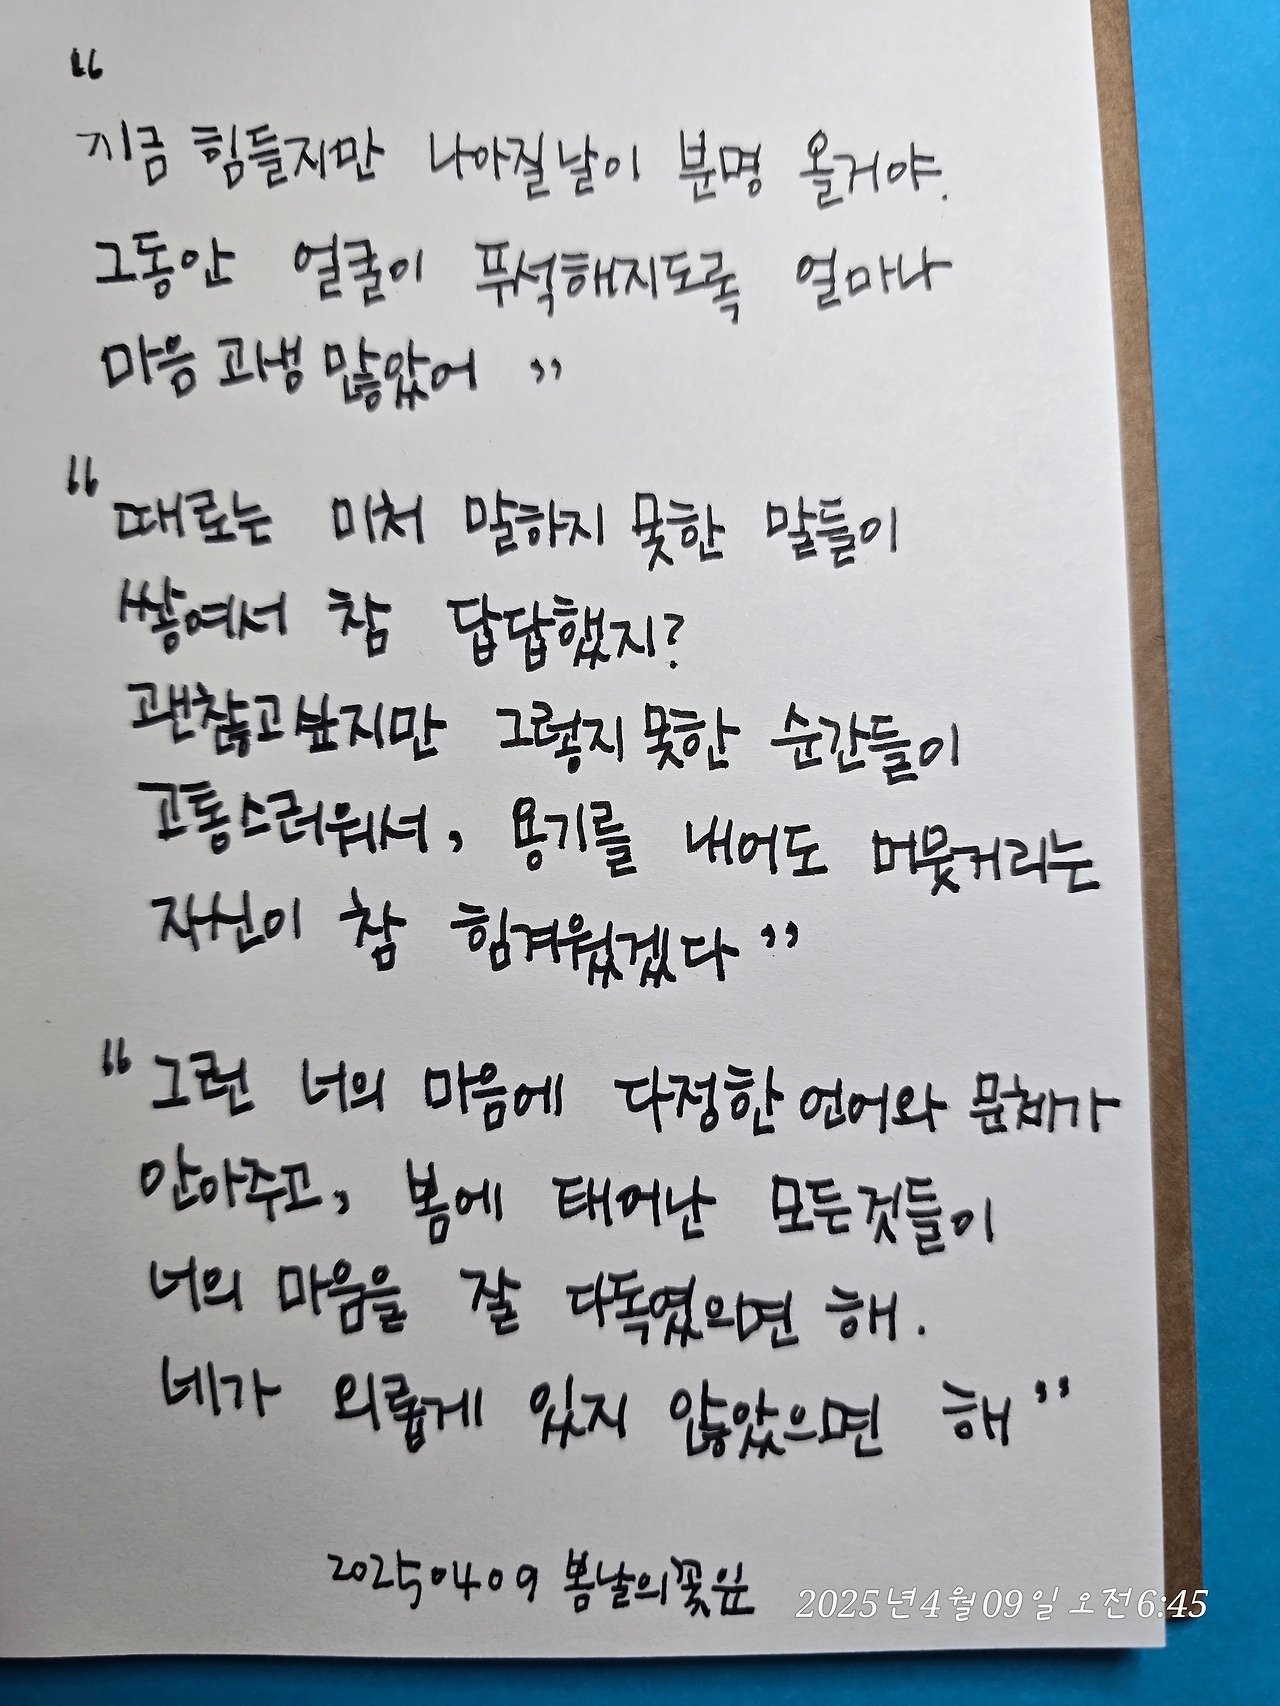 "
지금 힘들지만 나아질날이 분명 올거야.
그동안 얼굴이 푸석해지도록 얼마나
마음 고생 많았어 "
"때로는 미처 말하지 못한 말들이
쌓여서 참 답답했지?
괜찮고싶지만 그렇지 못한 순간들이
고통스러워서, 용기를 내어도 머뭇거리는
자신이 참 힘겨웠겠다"
"그런 너의 마음에 다정한 언어와 문체가
안아주고, 봄에 태어난 모든것들이
너의 마음을 잘 다독였으면 해.
네가 외롭게 있지 않았으면 해"
20250409 봄날의꽃잎
2025년4월09일 오전6:45